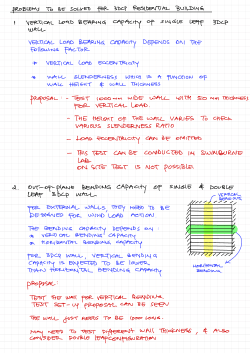 PROBLEMS TO BE SOLVED FOR 3DCP RESIDENTIAL BUILDING
1. VERTICAL LOAD BEARING CAPACITY OF SINGLE LEAF 3DCP
WALL
VERTICAL LOAD BEARING CAPACITY DEPENDS ON THE
FOLLOWING FACTOR
* VERTICAL LOAD ECCENTRICITY
* WALL SLENDERNESS WHICH IS A FUNCTION OF
WALL HEIGHT & WALL THICKNESS
PROPOSAL - TEST 1000mm WIDE WALL WITH 50 mm THICKNESS
FOR VERTICAL LOAD.
- THE HEIGHT OF THE WALL VARIES TO CHECK
VARIOUS SLENDERNESS RATIO
- LOAD ECCENTRICITY CAN BE OMITTED
- THIS TEST CAN BE CONDUCTED IN SWINBURNE
LAB.
ON SITE TEST IS NOT POSSIBLE.
2. OUT-OF-PLANE BENDING CAPACITY OF SINGLE & DOUBLE
LEAF 3DCP WALL
VERTICAL
BENDING
FOR EXTERNAL WALLS, THEY NEED TO BE
DESIGNED FOR WIND LOAD ACTION
THE BENDING CAPACITY DEPENDS ON
* VERTICAL BENDING CAPACITY
* HORIZONTAL BENDING CAPACITY
FOR 3DCP WALL, VERTICAL BENDING
CAPACITY IS EXPECTED TO BE LOWER
THAN HORIZONTAL BENDING CAPACITY
HORIZONTAL
BENDING
PROPOSAL
TEST THE WALL FOR VERTICAL BENDING
TEST SET-UP PROPOSAL CAN BE SEEN
THE WALL JUST NEEDS TO BE 1000 LONG.
MAY NEED TO TEST DIFFERENT WALL THICKNESS, & ALSO
CONSIDER DOUBLE LEAF CONFIGURATION